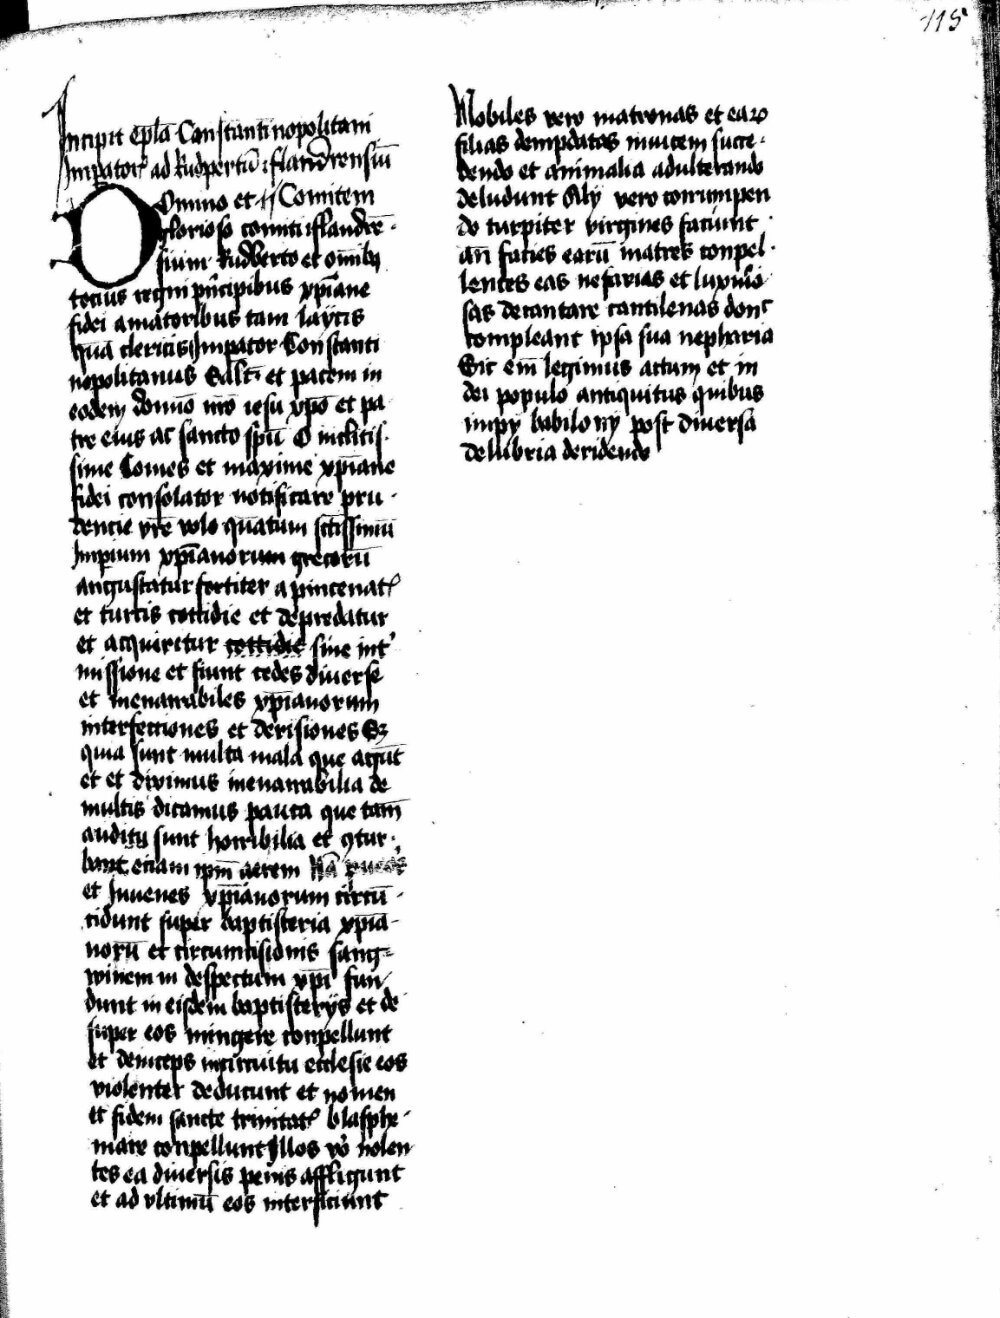 115
Incipit epla Constantinopolitani
Impator ad Rudpertū fflandrensiū
Comitem
Domino et
glorioso comiti fflandre
sium Rudberto et omībꝰ
tocius regni pncipibus xpiane
fidei amatoribus tam laycis
quā clericis Impator Constanti
nopolitanus Saltē et pacem in
eodem domīo nr̄o iesu xpo et pa
tre eius ac sancto spū O inclitis
sime Comes et maxime xpiane
fidei consolator notificare pru
dencie vre volo quātum sctissimū
Impium xpianorum grecorū
angustatur fortiter a pincenatꝭ
et turcis cottidie et depredatur
et acquiretur cottidie sine int
missione et fiunt cedes diuerse
et inenarrabiles xpianorum
interfectiones et derisiones Sꝫ
quia sunt multa mala que agūt
et et diximus inenarrabilia de
multis dicamus pauca que tam̄
auditu sunt horribilia et ꝯtur
bant etiam ipm̄ aerem Nā pueros
et Juuenes xpianorum circū
cidunt super baptisteria xpia
norū et circumcisionis sang
winem in despectum xpi fun
dunt in eisdem baptisterijs et de
super eos mingere conpellunt
et deinceps incircuitu ecclesie eos
violenter deducunt et nomen
et fidem sancte trinitatꝭ blasphe
mare conpellunt Illos vo nolen
tes ea diuersis penis affligunt
et ad vltimū eos interficiunt
Nobiles vero matronas et earꝝ
filias depredatas inuicem succe
dendo et animalia adulterando
deludunt Alij vero corrumpen
do turpiter virgines faciunt
an̄ facies earū matres conpel
lentes eas nefarias et luxurio
sas decantare cantilenas donc
compleant ipsa sua nepharia
Sic em̄ legimus actum et in
dei populo antiquitus quibus
impij babilonij post diuersa
delubria deridendo